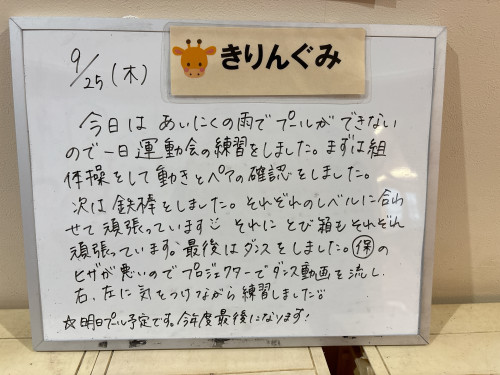 9/25(木)
きりんぐみ
今日は あいにくの雨で プールが できない
ので一日運動会の練習をしました。まずは組
体操をして動きとペアの確認をしました。
次は鉄棒をしました。それぞれのレベルに合わ
せて頑張っています それに とび箱もそれぞれ
頑張っています。最後はダンスをしました。保の
ヒザが悪いのでプロジェクターでダンス動画を流し、
右、左に気をつけながら練習しました
☆明日プール予定です。今年度最後になります!